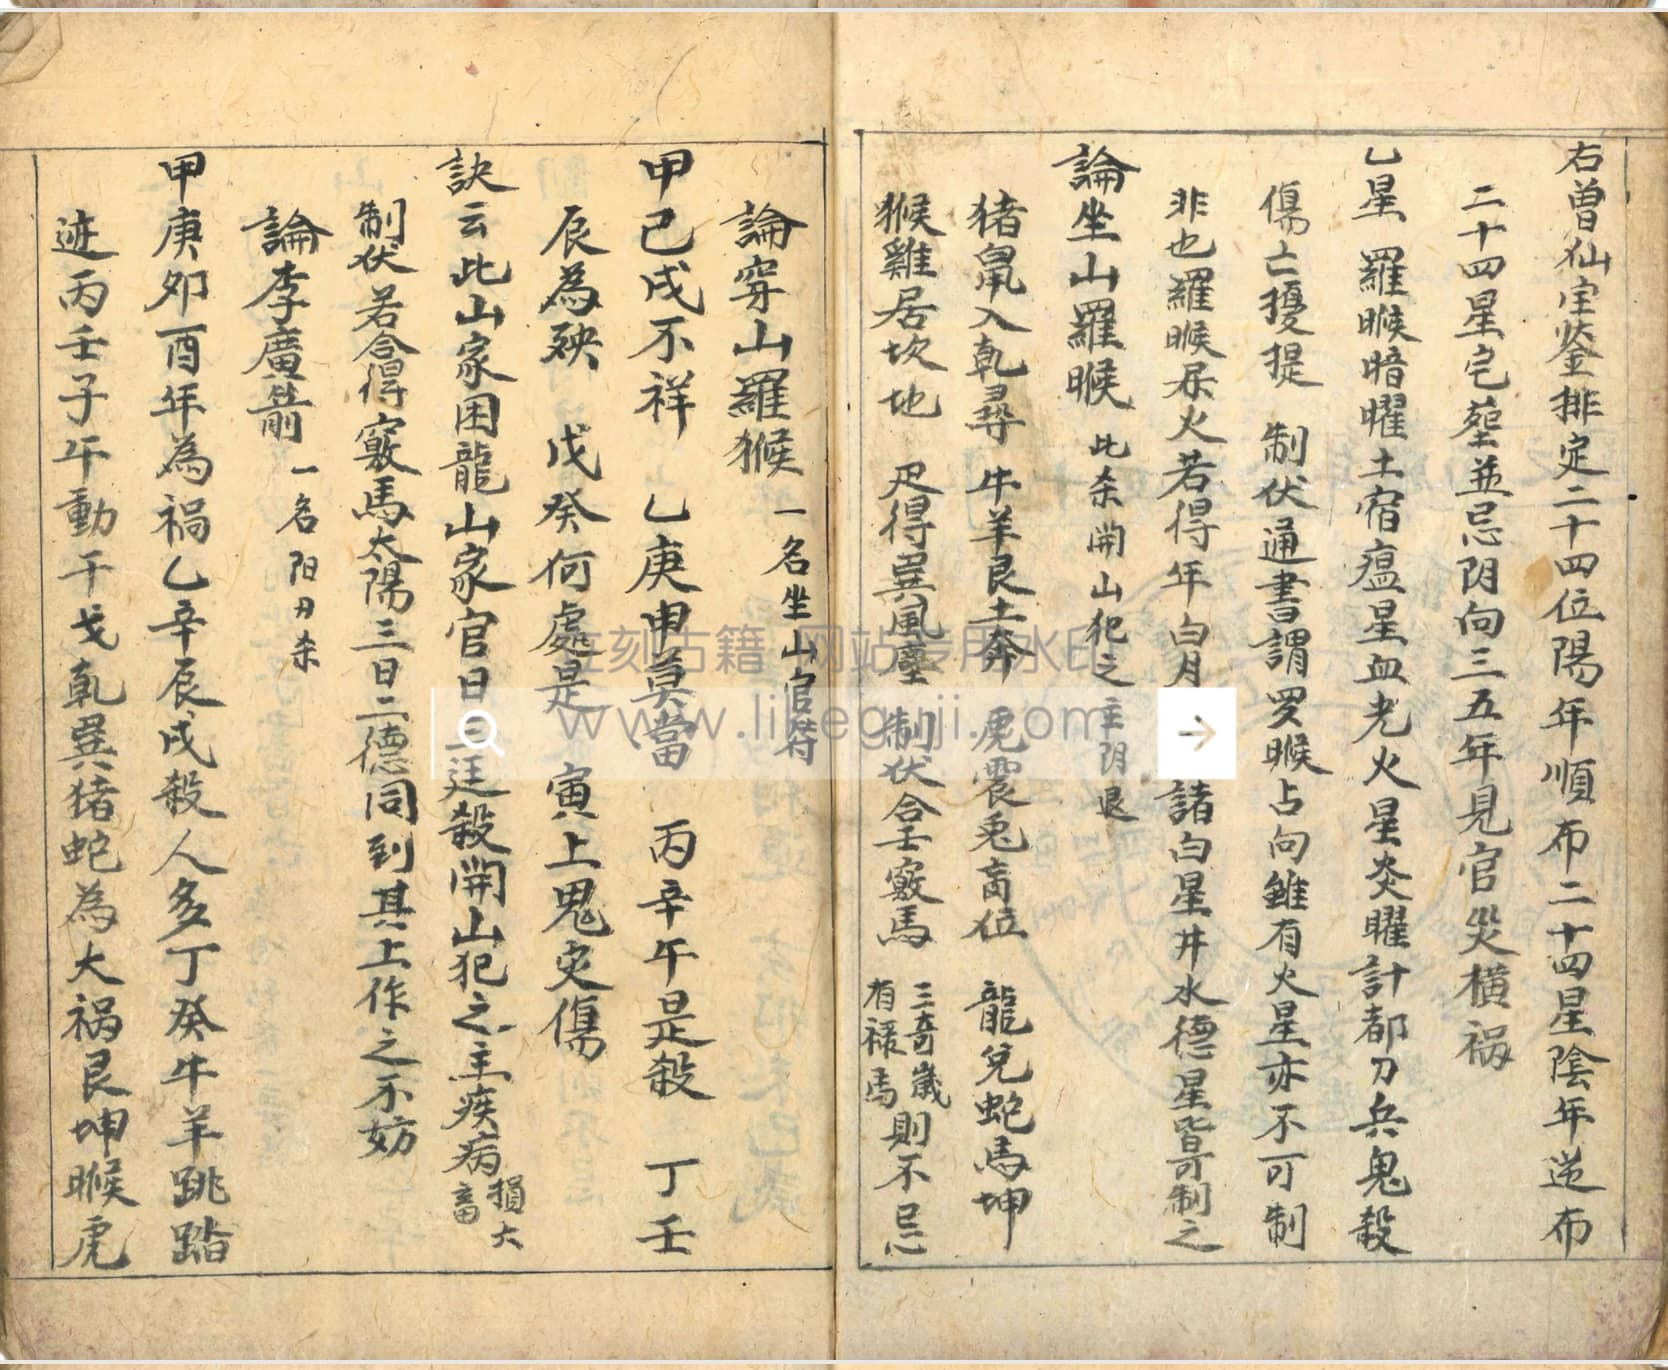 右曾仙宝鉴排定二十四位陽年順布二十四星陰年逆布
二十四星宅塋並忌阴向三五年見官災横禍
乙星 羅睺暗曜土宿瘟星血光火星炎曜計都刀兵鬼殺
傷亡擾提 制伏通書謂罗睺占向雖有火星亦不可制
非也羅睺屬火若得年白月 諸白星井水德星皆可制之
論坐山羅睺 此杀開山犯之主阴退
猪鼠入乾尋 牛羊艮土奔 虎震兎畜位 龍兌蛇馬坤
猴雞居坎地 尽得巽風塵 制伏合壬竅馬 三奇歲有禄馬則不忌
論穿山羅猴 一名坐山官符
甲己戌不祥 乙庚申莫當 丙辛午是殺 丁壬
辰為殃 戊癸何處是 寅上鬼灾傷
訣云此山家困龍山家官日 廷殺開山犯之主疾病損大畜
制伏若合得竅馬太陽三日二德同到其上作之不妨
論李廣箭 一名阳刃杀
甲庚夘酉年為禍乙辛辰戌殺人多丁癸牛羊跳踏
迹丙壬子午動干戈乾巽猪蛇為大禍艮坤睺虎
立刻古籍 网站专用水印
www.likeguji.com